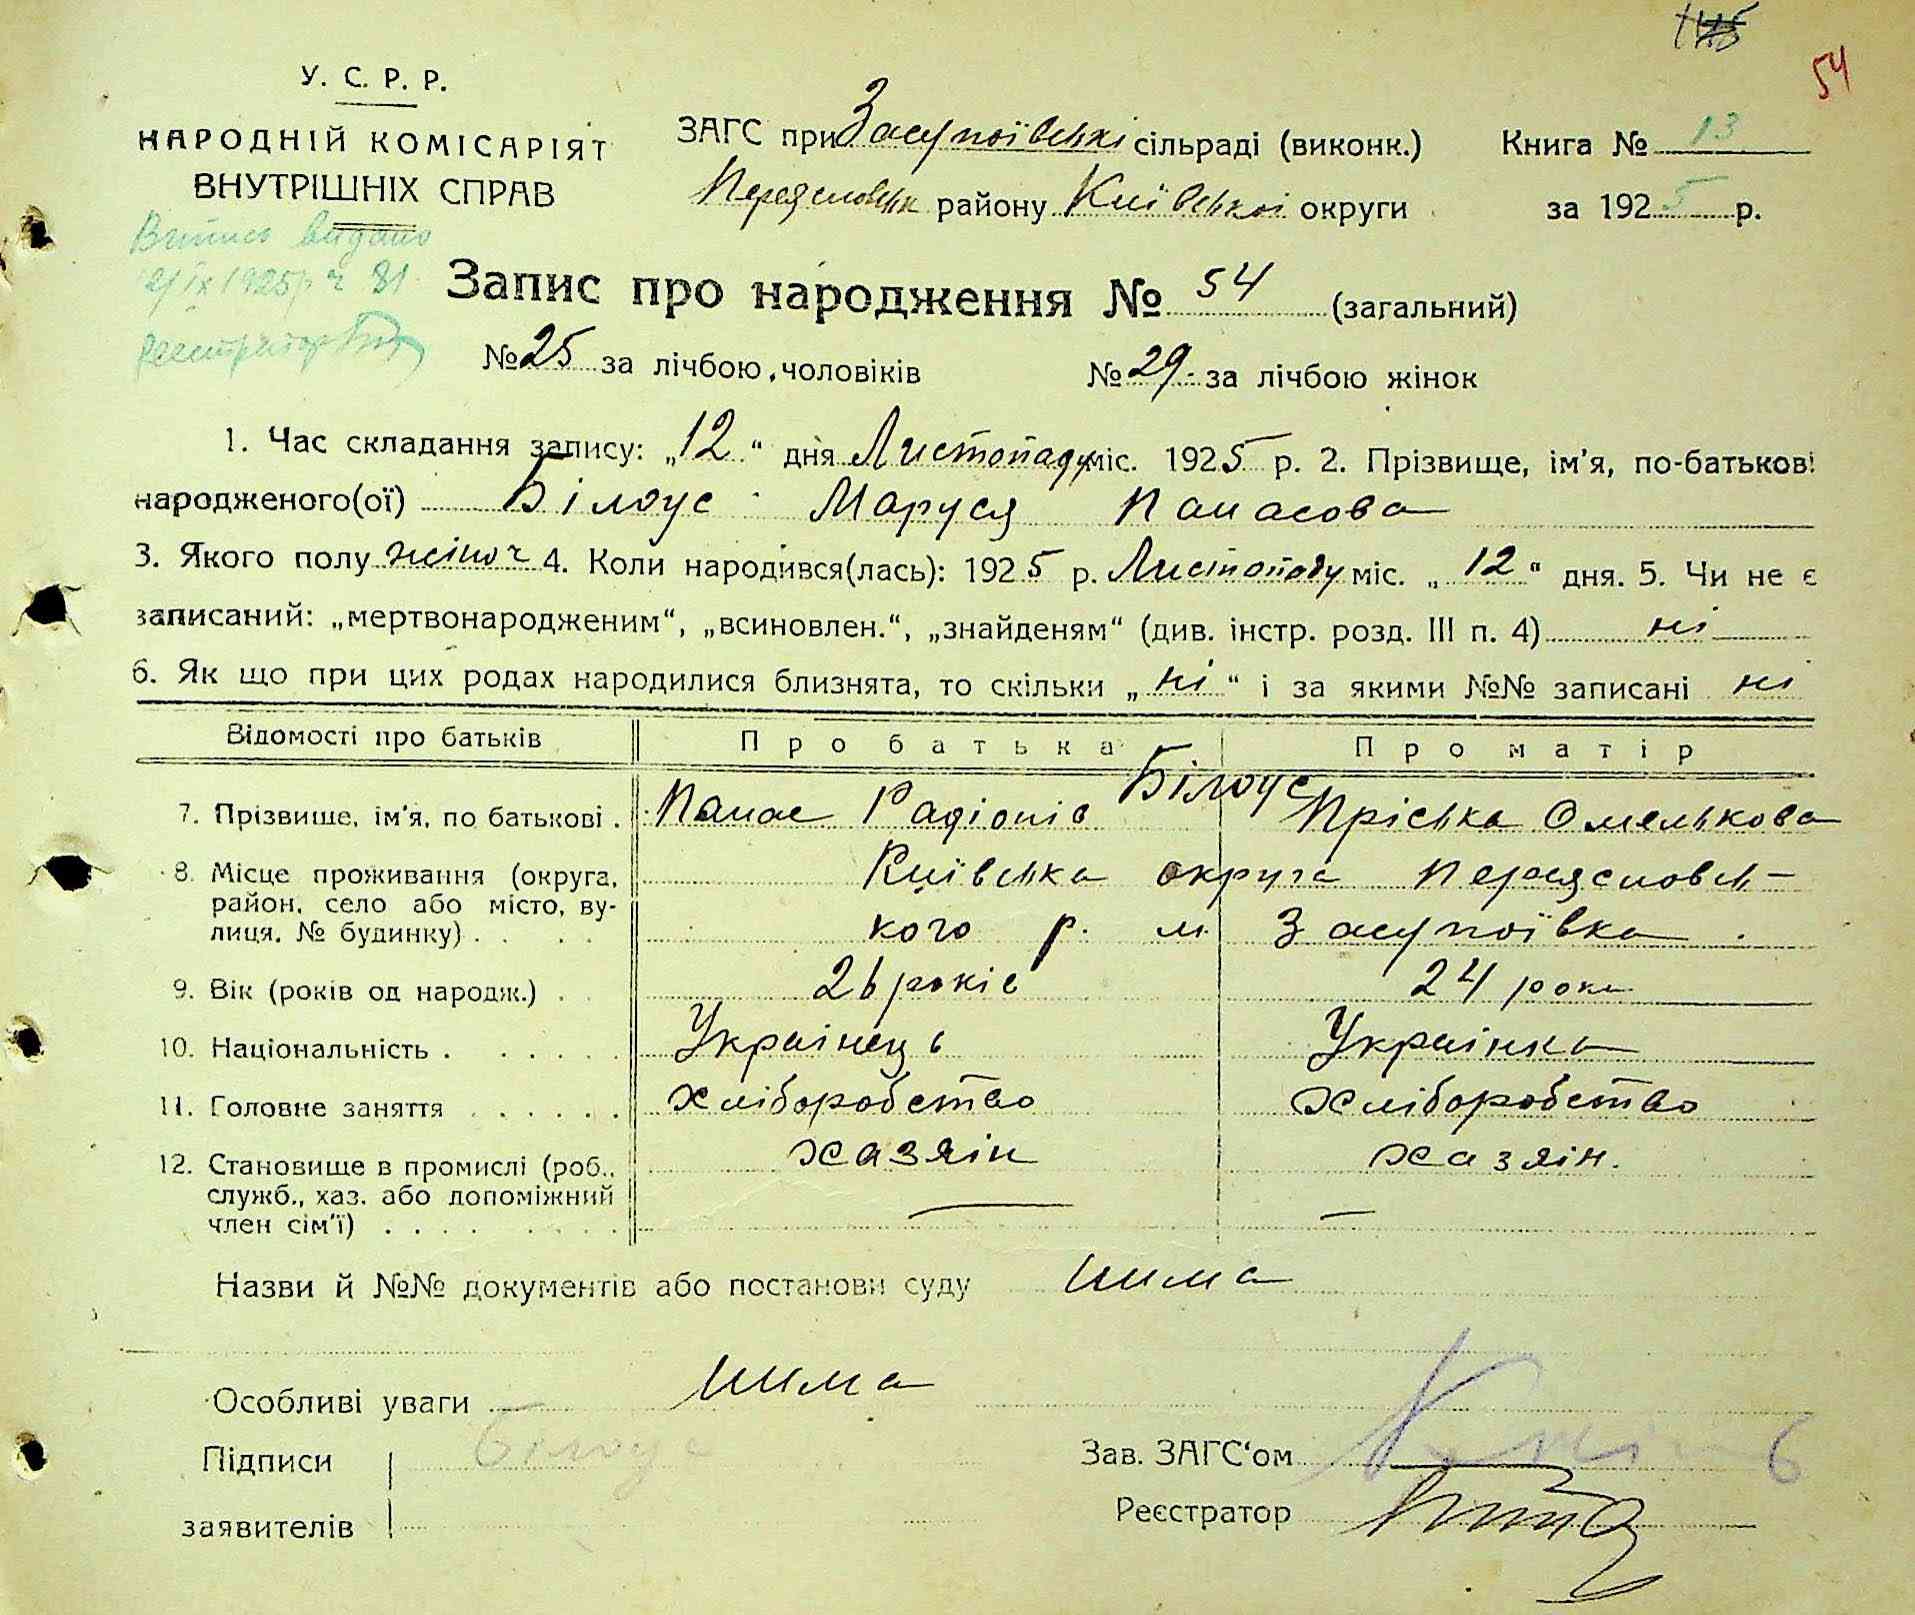 54
У. С. Р. Р.
НАРОДНІЙ КОМІСАРІЯТ
ВНУТРІШНІХ СПРАВ
ЗАГС при Засупоївській сільраді (виконк.)
Переясловськ району Київської округи
Книга № 13
за 1925 р.
Витпис видано
21/IX 1925 р ч 81
Реєстратор
Запис про народження № 54 (загальний)
№ 25 за лічбою чоловіків № 29 за лічбою жінок
1. Час складання запису: „12“ дня Листопаду міс. 1925 р. 2. Прізвище, ім'я, по-батькові
народженого(ої) Білоус Маруся Панасова
3. Якого полу жіноч 4. Коли народився(лась): 1925 р. Листопаду міс. „12“ дня. 5. Чи не є
записаний: „мертвонародженим“, „всиновлен.“, „знайденям“ (див. інстр. розд. III п. 4) ні
6. Як що при цих родах народилися близнята, то скільки „ні“ і за якими №№ записані ні
Відомості про батьків Про батька Про матір
7. Прізвище, ім'я, по батькові . Панас Радіонів Білоус Пріська Омелькова
8. Місце проживання (округа, Київська округа Переясловсь-
район, село або місто, ву- кого р. м Засупоївка
лиця, № будинку) . . . .
9. Вік (років од народж.) . . 26 років 24 роки
10. Національність . . . . . . Українець Українка
11. Головне заняття . . . . . . хліборобство хліборобство
12. Становище в промислі (роб., хазяїн хазяїн.
служб., хаз. або допоміжний
член сім'ї) . . . . . . . . . — —
Назви й №№ документів або постанови суду нима
Особливі уваги нима
Підписи Білоус
заявителів
Зав. ЗАГС'ом
Реєстратор